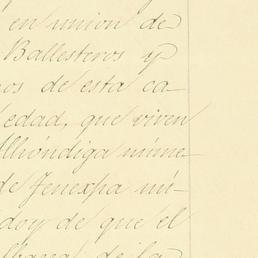 en union de
Ballesteros y
os de esta ca-
edad, que viven
Alhóndiga núme-
de Tenexpa nú-
doy de que el